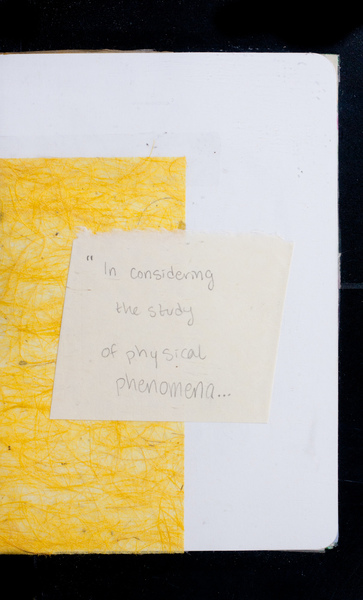 " In considering
the study
of physical
phenomena...